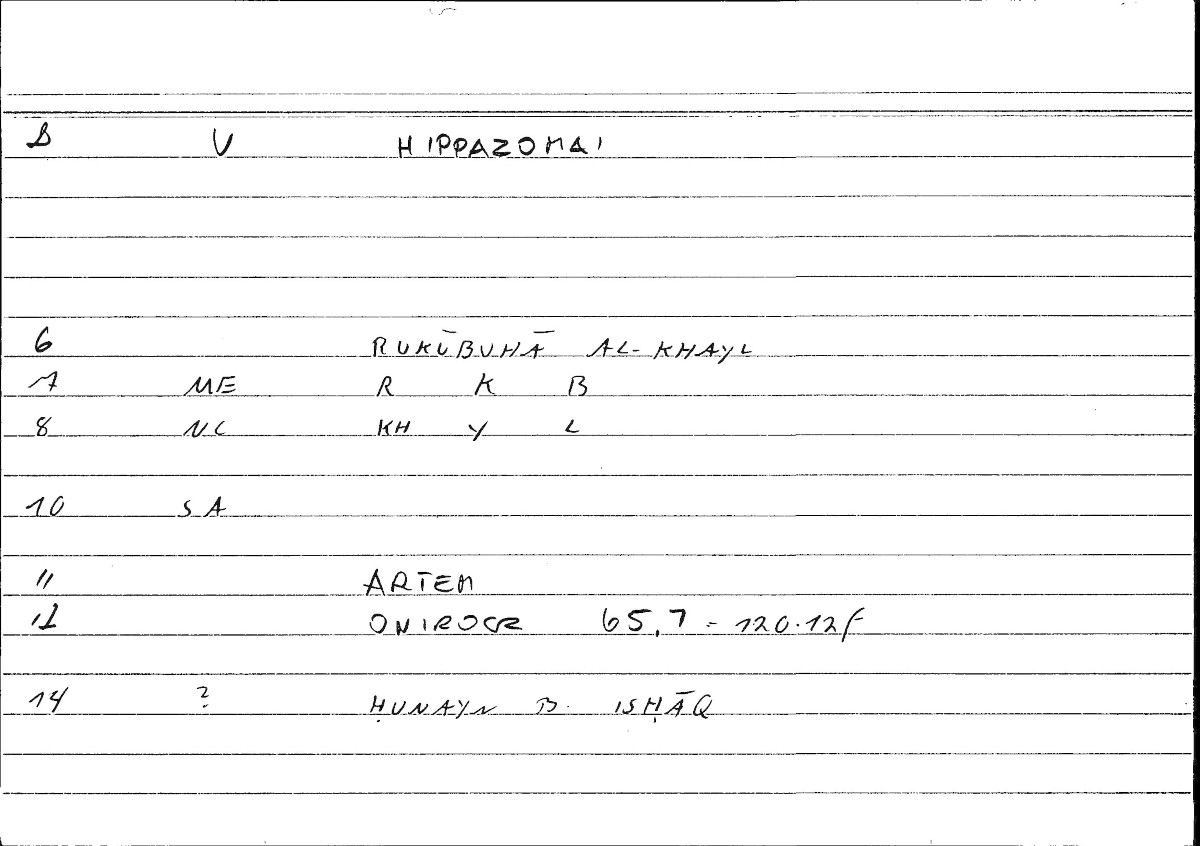 V HIPPAZOMAI
6 RUKŪBUHĀ AL-KHAYL
7 ME R K B
8 NC KH Y L
10 SA
11 ARTEM
12 ONIROCR 65,7 = 120.12f
14 ? ḤUNAYN B. ISḤĀQ